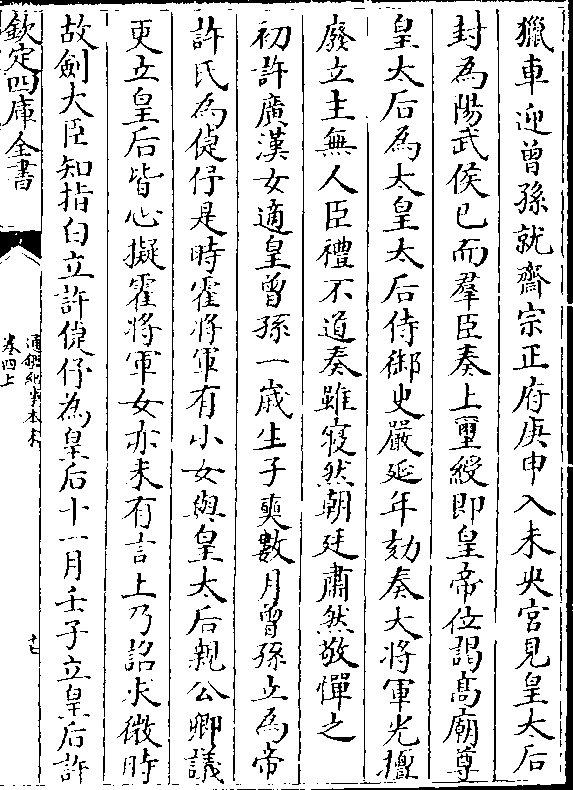 獵車迎曾孫就齋宗正府庚申入未央宫見皇太后
封為陽武侯已而羣臣奏上璽綬即皇帝位謁髙廟尊
皇太后為太皇太后侍御史嚴延年劾奏大將軍光擅
廢立主無人臣禮不道奏雖寢然朝廷肅然敬憚之
初許廣漢女適皇曾孫一歲生子奭數月曾孫立為帝
許氏為倢伃是時霍將軍有小女與皇太后親公卿議
更立皇后皆心擬霍將軍女亦未有言上乃詔求微時
故劍大臣知指白立許倢伃為皇后十一月壬子立皇后許
欽定四庫全書
通鑑紀事本末
卷四上
十七